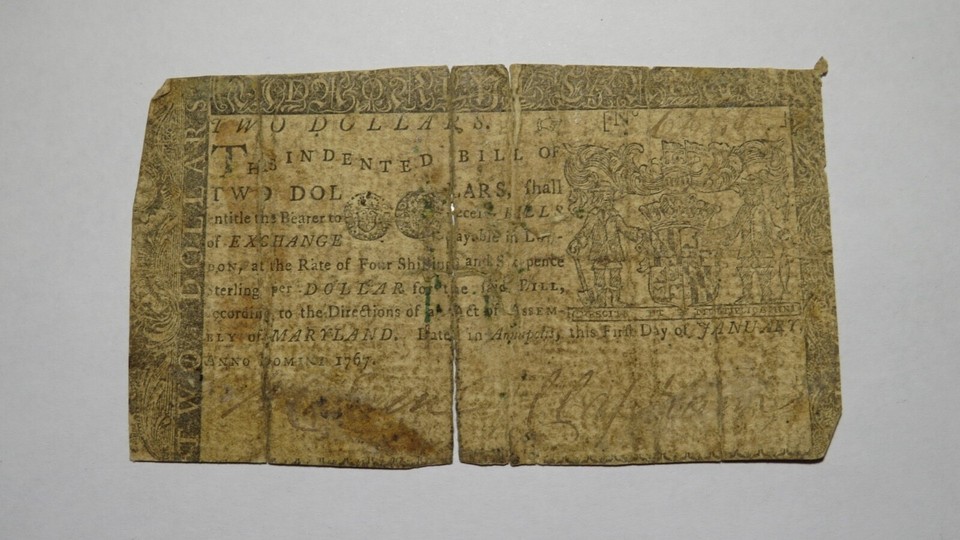 TWO DOLLARS. [N°
THIS INDENTED BILL OF
TWO DOLLARS, shall
entitle the Bearer to receive BILLS
of EXCHANGE payable in Lon-
don, at the Rate of Four Shillings and Sixpence
Sterling per DOLLAR for the said BILL,
according to the Directions of an Act of Assem-
bly of MARYLAND. Dated in Annapolis, this First Day of JANUARY,
Anno Domini 1767.
TWO DOLLARS